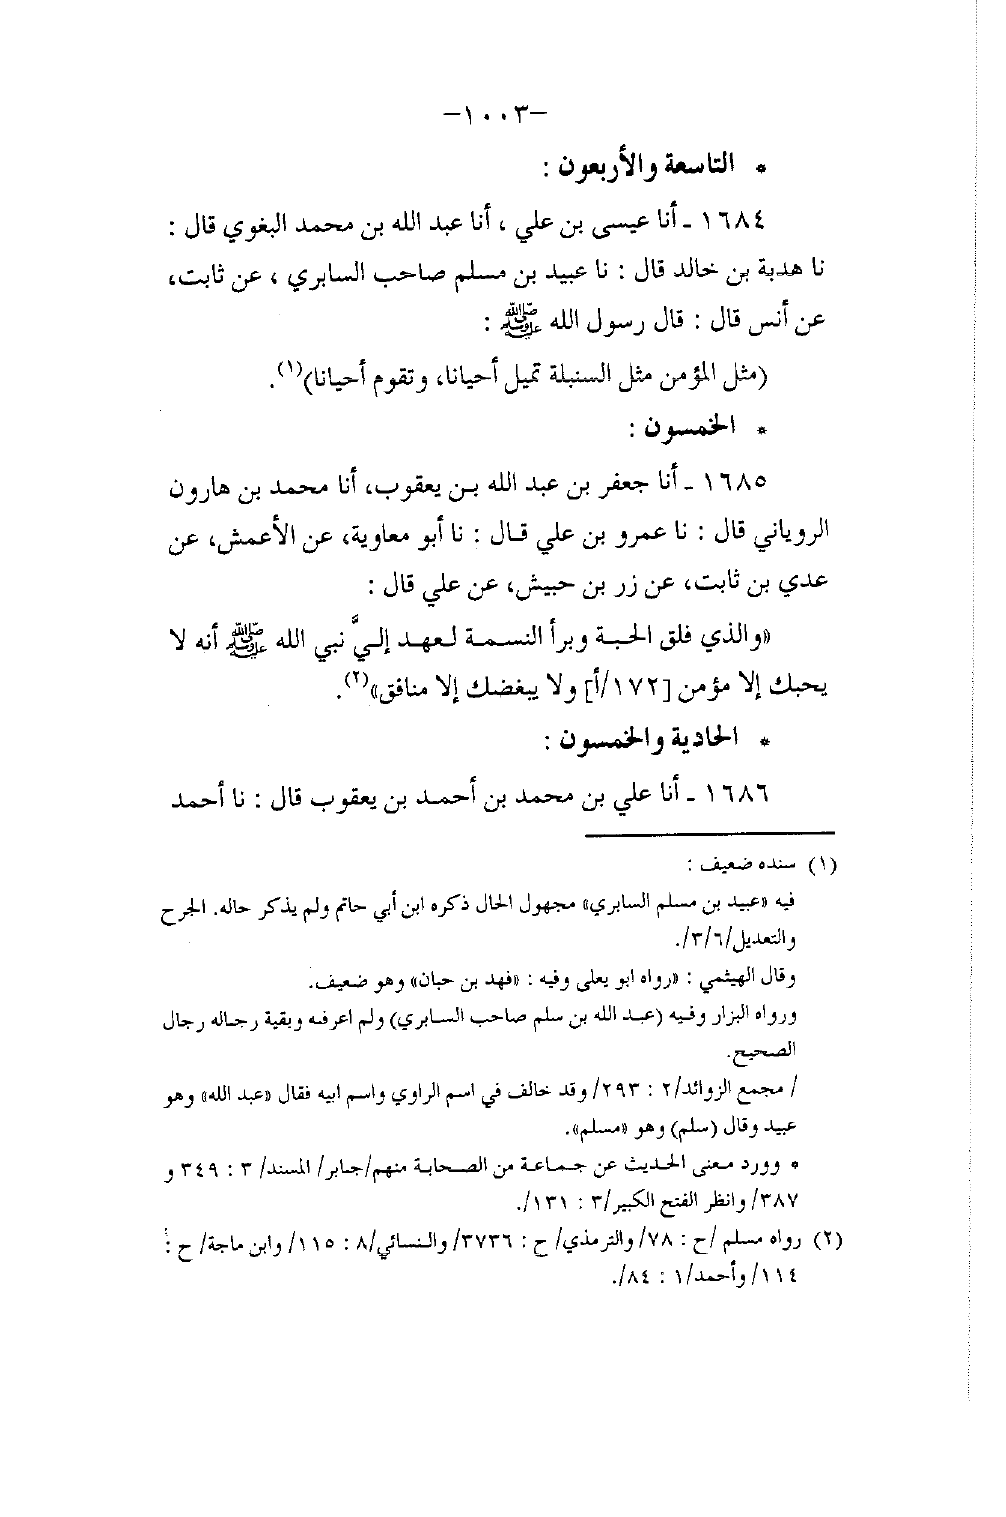 -١٠٠٣-
* التاسعة والأربعون :
١٦٨٤ - أنا عيسى بن علي ، أنا عبد الله بن محمد البغوي قال :
نا هدبة بن خالد قال : نا عبيد بن مسلم صاحب السابري ، عن ثابت،
عن أنس قال : قال رسول الله ﷺ :
(مثل المؤمن مثل السنبلة تميل أحيانا، وتقوم أحيانا)(١).
* الخمسون :
١٦٨٥ - أنا جعفر بن عبد الله بن يعقوب، أنا محمد بن هارون
الروياني قال : نا عمرو بن علي قال : نا أبو معاوية، عن الأعمش، عن
عدي بن ثابت، عن زر بن حبيش، عن علي قال :
«والذي فلق الحبة وبرأ النسمة لعهد إليَّ نبي الله ﷺ أنه لا
يحبك إلا مؤمن [١٧٢/أ] ولا يبغضك إلا منافق»(٢).
* الحادية والخمسون :
١٦٨٦ - أنا علي بن محمد بن أحمد بن يعقوب قال : نا أحمد
(١) سنده ضعيف :
فيه «عبيد بن مسلم السابري» مجهول الحال ذكره ابن أبي حاتم ولم يذكر حاله. الجرح
والتعديل/٣/٦/.
وقال الهيثمي : «رواه ابو يعلى وفيه : «فهد بن حبان» وهو ضعيف.
ورواه البزار وفيه (عبد الله بن سلم صاحب السابري) ولم اعرفه وبقية رجاله رجال
الصحيح.
/ مجمع الزوائد/٢ : ٢٩٣/ وقد خالف في اسم الراوي واسم ابيه فقال «عبد الله» وهو
عبيد وقال (سلم) وهو «مسلم».
* وورد معنى الحديث عن جماعة من الصحابة منهم/جابر/ المسند/ ٣ : ٣٤٩ و
٣٨٧/ وانظر الفتح الكبير/٣ : ١٣١/.
(٢) رواه مسلم /ح : ٧٨/ والترمذي/ ح : ٣٧٣٦/ والنسائي/٨ : ١١٥/ وابن ماجة/ ح :
١١٤/ وأحمد/١ : ٨٤/.